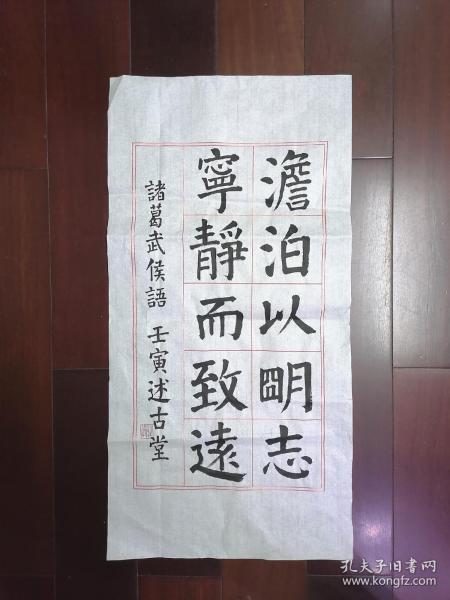 澹泊以明志
寧靜而致遠
諸葛武侯語 壬寅述古堂
孔夫子旧书网
www.kongfz.com